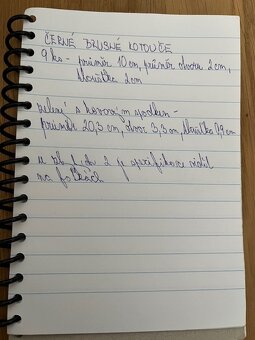 ČERNÉ BRUSNÉ KOTOUČE
9 ks - průměr 10 cm, průměr otvoru 2 cm,
tloušťka 2 cm
zelený s kovovým spodkem -
průměr 20,3 cm, otvor 3,3 cm, tloušťka 0,9 cm
u zb. je specifikace vidět
na fotkách